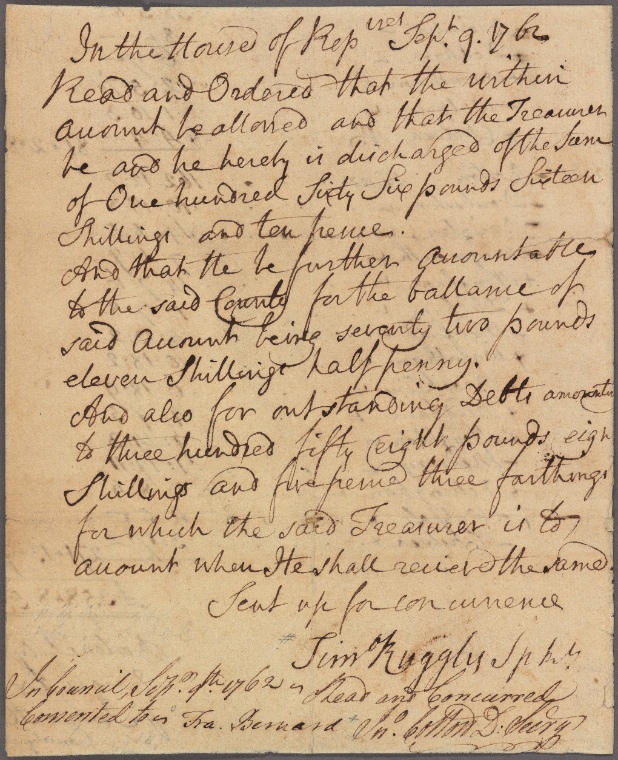 In the House of Rep ives Sept. 9. 1762
Read and Ordered that the within
account be allowed and that the Treasurer
be and he hereby is discharged of the Sum
of One hundred Sixty Six pounds Sixteen
Shillings and ten pence.
And that He be further accountable
to the said County for the ballance of
said account being seventy two pounds
eleven Shillings half penny.
And also for outstanding Debts amountg
to three hundred fifty eight pounds eigh
Shillings and five pence three farthings
for which the said Treasurer is to
account when He shall recieve the same.
Sent up for concurrence
Timo Ruggles Spkr
In Council, Sepr. 9th. 1762 Read and Concurred
Consented to Fra. Bernard Jno. Cotton D. Secry